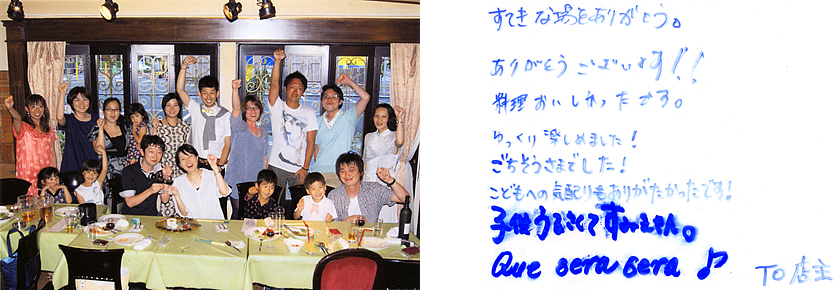 すてきな場をありがとう。
ありがとうございます!!
料理おいしかったです。
ゆっくり楽しめました!
ごちそうさまでした!
こどもへの気配りもありがたかったです!
子供うるさくてすみません。
Que sera sera ♪
TO店主